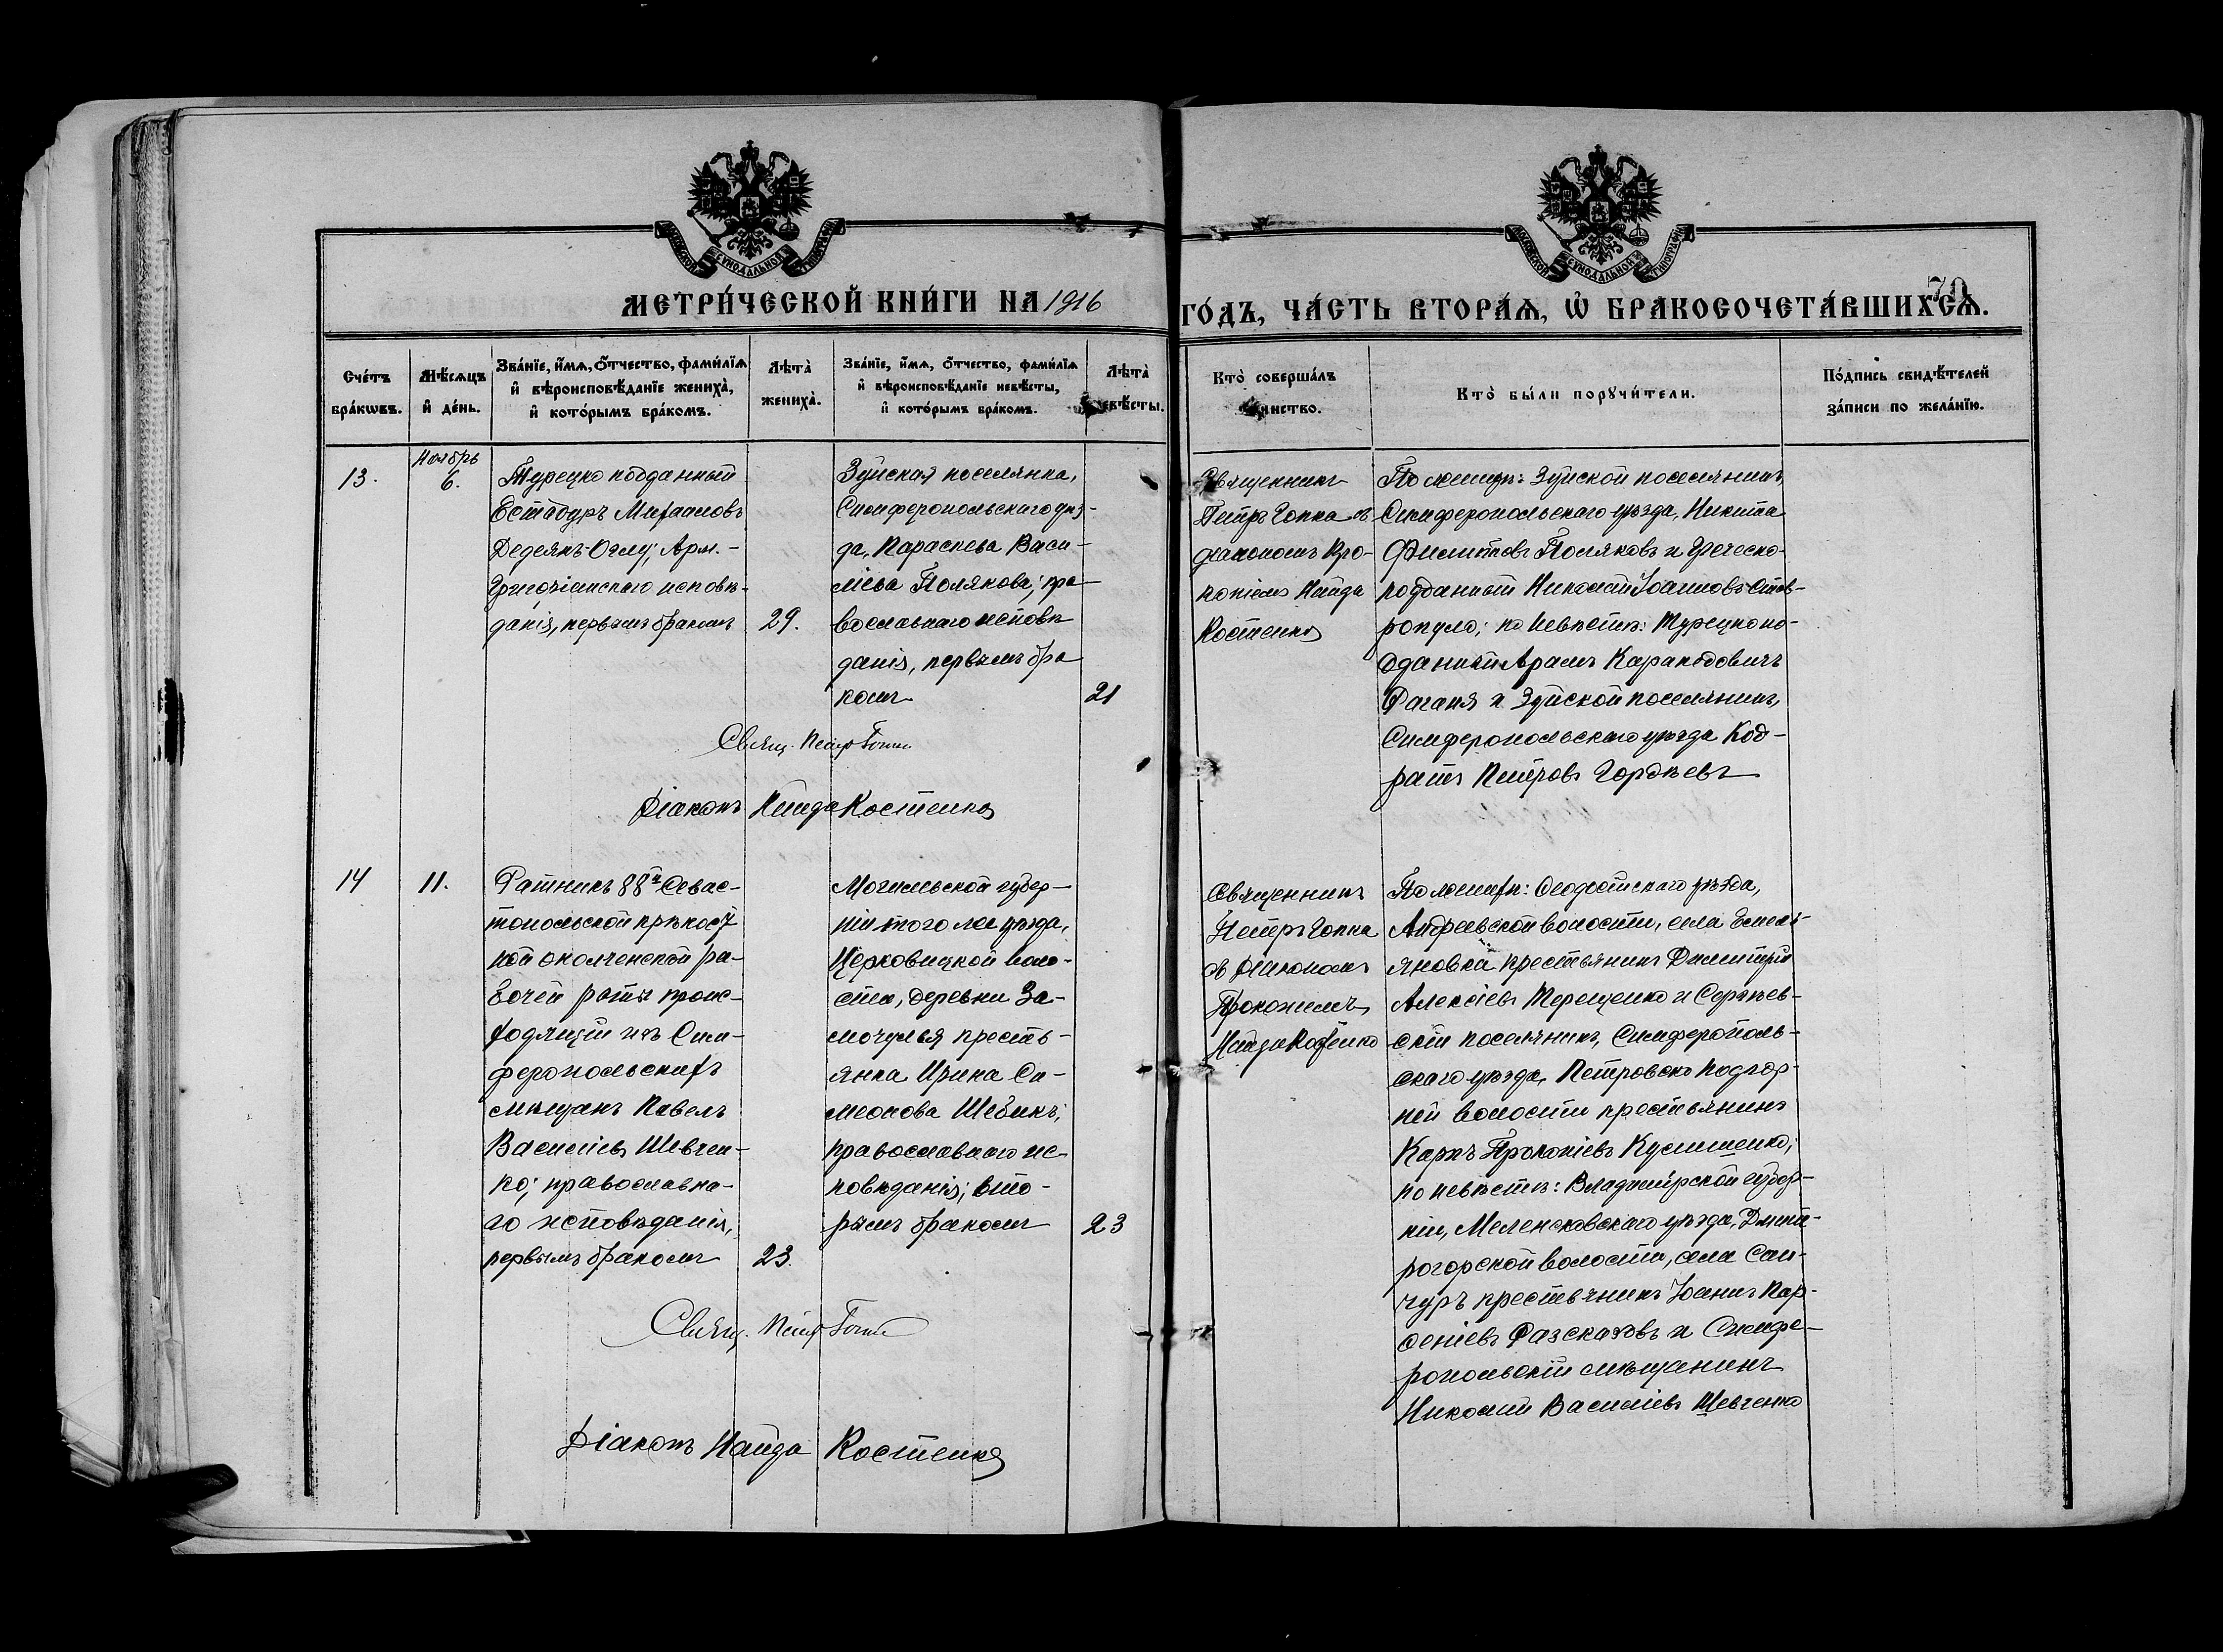 МОСКОВСКОЙ СѴНОДАЛЬНОЙ ТИПОГРАФІИ
МОСКОВСКОЙ СѴНОДАЛЬНОЙ ТИПОГРАФІИ
МЕТРИ́ЧЕСКОЙ КНИ́ГИ НА 1916
ГО́ДЪ, ЧА́СТЬ ВТОРА́Ѧ, Ѡ҆ БРАКОСОЧЕТА́ВШИХСѦ.
Сче́тъ
бра́кѡвъ.
Мѣ́сѧцъ
и҆ де́нь.
Зва́нїе, и҆́мѧ, ѻ҆́тчество, фами́лїѧ
и҆ вѣроисповѣ́данїе жениха̀,
и҆ кото́рымъ бра́комъ.
Лѣта̀
жениха̀.
Зва́нїе, и҆́мѧ, ѻ҆́тчество, фами́лїѧ
и҆ вѣроисповѣ́данїе невѣ́сты,
и҆ кото́рымъ бра́комъ.
Лѣта̀
невѣ́сты.
Кто̀ соверша́лъ
Кто̀ бы́ли порꙋчи́тели.
По́дпись свидѣ́телей
за́писи по жела́нїю.
13.
Ноябрь
6.
Турецко подданный
Дедеянъ-Оглу; Арм.-
Григоріанскаго исповѣ-
данія, первымъ бракомъ
29.
Зуйская поселянка,
Симферопольскаго уѣз-
да, Параскева Васи-
ліева Полякова; пра-
вославнаго исповѣ
данія, первымъ бра
комъ
21
Священникъ
Петръ Гопка съ
діакономъ Про-
копіемъ Найда
Костенко
По женихѣ: Зуйской поселянинъ,
Симферопольскаго уѣзда, Никита
Филипповъ Поляковъ и Греческо-
подданный Николай Іоанновъ Став-
ропуло; по невѣстѣ: Турецкопо-
дданный Арамъ
и Зуйской поселянинъ,
Симферопольскаго уѣзда Код-
ратъ Петровъ Гордѣевъ
Свящ. Петръ Гопка
Діаконъ Найда Костенко
14
11.
Ратникъ 88й Севас-
топольской крѣпост
ной ополченской ра-
бочей роты проис-
ходящій изъ Сим-
феропольскихъ
мѣщанъ Павелъ
Василіевъ Шевчен-
ко; православна-
го исповѣданія,
первымъ бракомъ
23.
Могилевской губер-
ніи того же уѣзда,
воло-
сти, деревни За-
мочулья кресть-
янка Ирина Си-
меонова Шебикъ;
православнаго ис-
повѣданія; вто-
рымъ бракомъ
23
Священникъ
Петръ Гопка
съ діакономъ
Прокопіемъ
Найда Костенко
По женихѣ: Ѳеодосійскаго уѣзда,
Андреевской волости, села Емель-
яновка крестьянинъ Димитрій
Алексіевъ Терещенко и Сергѣев-
скій поселянинъ, Симферополь-
скаго уѣзда, Петровско Подгор-
ней волости крестьянинъ
Карпъ Прокопіевъ
по невѣстѣ: Владимірской губер-
ніи, Меленковскаго уѣзда, Дмит-
рогорской волости, села Сан-
чуръ крестьянинъ Іоаннъ Пар-
ѳеніевъ Разсказовъ и Симфе-
ропольскій мѣщанинъ
Николай Василіевъ Шевченко
Свящ. Петръ Гопка
Діаконъ Найда Костенко